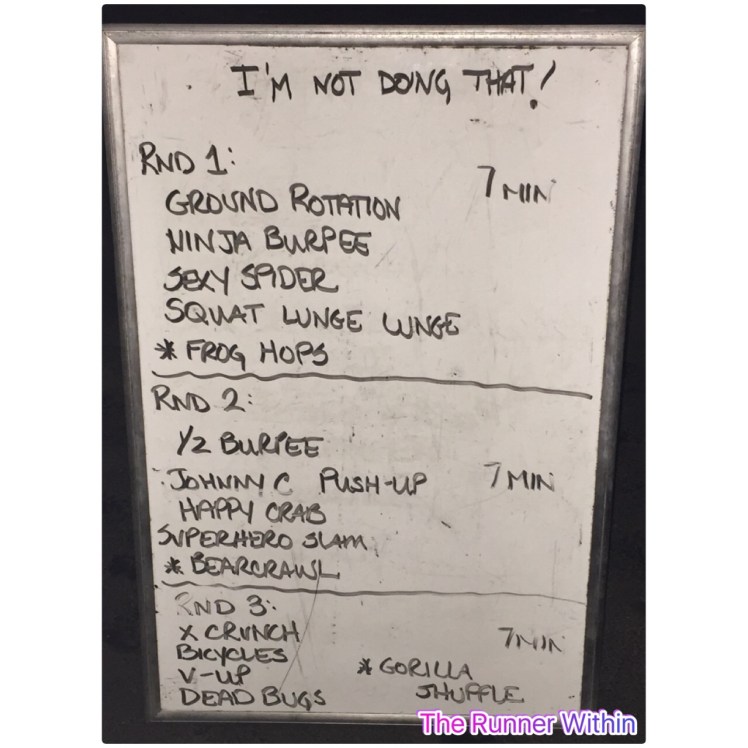 I'M NOT DOING THAT!
RND 1:
7 MIN
GROUND ROTATION
NINJA BURPEE
SEXY SPIDER
SQUAT LUNGE LUNGE
* FROG HOPS
RND 2:
1/2 BURPEE
JOHNNY C PUSH-UP 7 MIN
HAPPY CRAB
SUPERHERO SLAM
* BEARCRAWL
RND 3:
X CRUNCH 7 MIN
BICYCLES
V-UP * GORILLA
DEAD BUGS SHUFFLE
The Runner Within